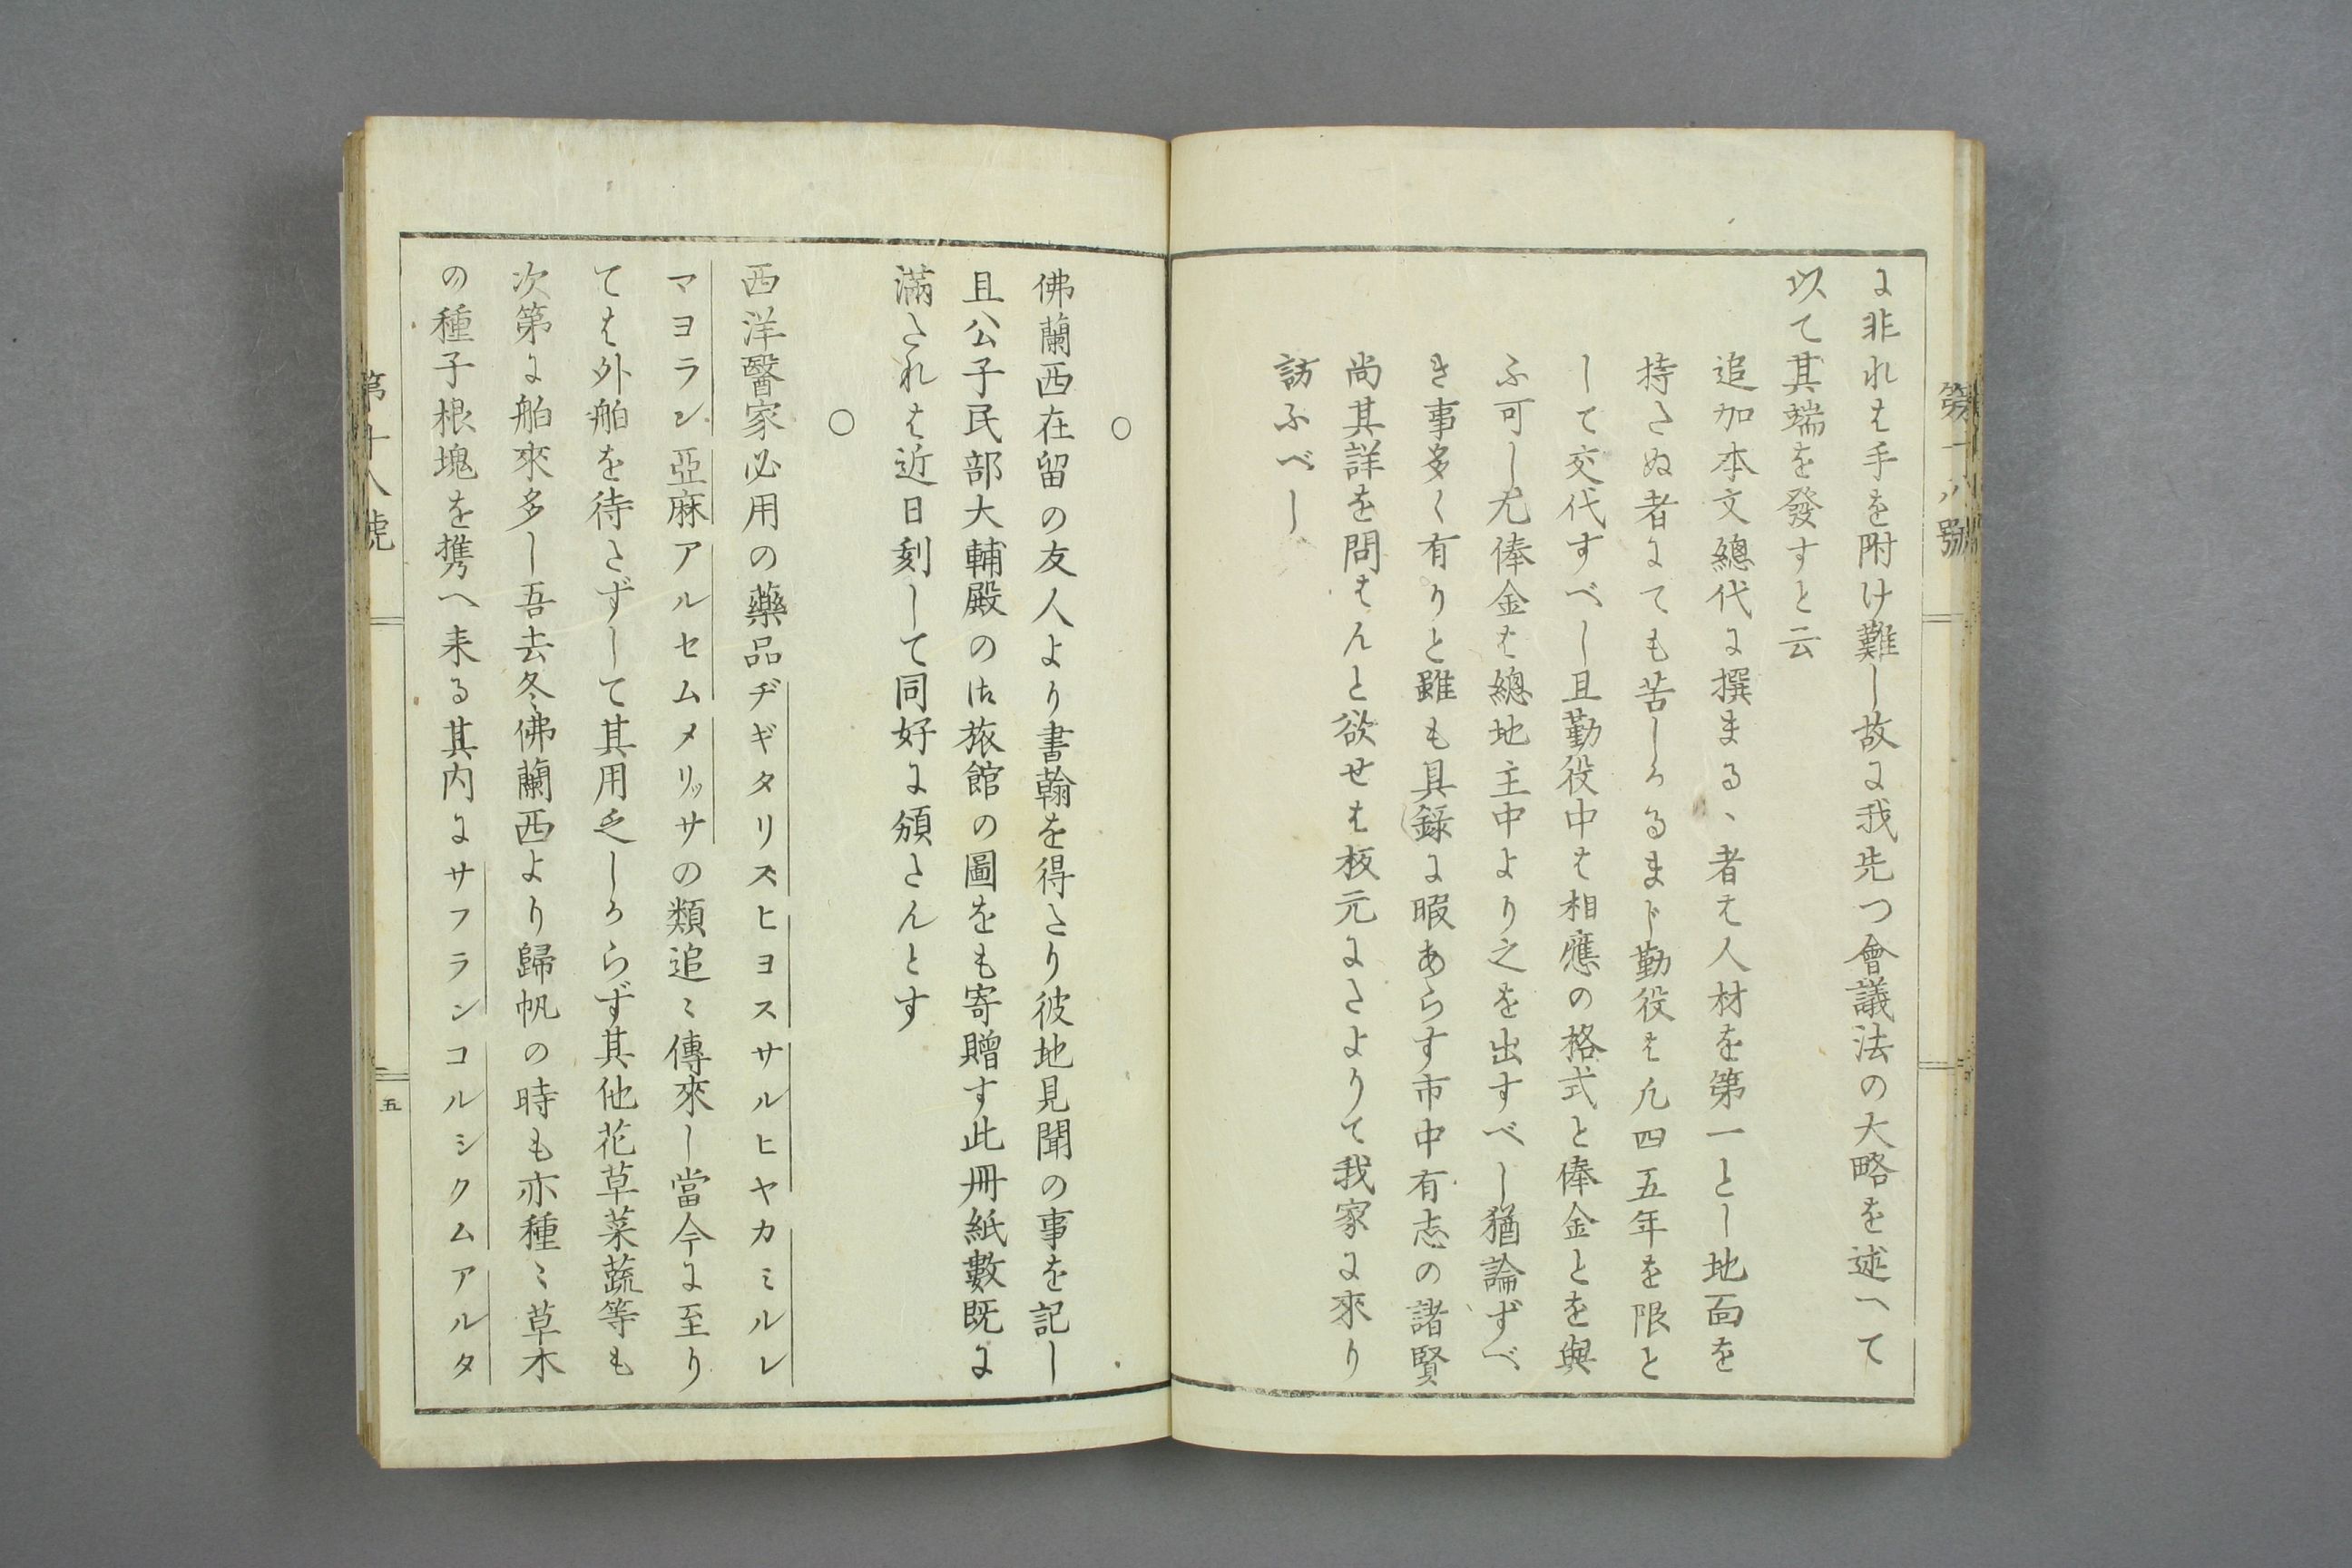 第十八號
に非れは手を附け難し故に我先つ會議法の大略を述へて
以て其端を發すと云
追加本文總代に撰まるゝ者は人材を第一とし地面を
持たぬ者にても苦しかるまじ勤役は凡四五年を限と
して交代すべし且勤役中は相應の格式と俸金とを與
ふ可し尤俸金は總地主中より之を出すべし猶論ずべ
き事多く有りと雖も具錄に暇あらす市中有志の諸賢
尚其詳を問はんと欲せは板元にたよりて我家に來り
訪ふべし
○
佛蘭西在留の友人より書翰を得たり彼地見聞の事を記し
且公子民部大輔殿の御旅館の圖をも寄贈す此冊紙數既に
滿たれは近日刻して同好に頒たんとす
○
西洋醫家必用の藥品ヂギタリスヒヨスサルヒヤカミルレ
マヨラン亞麻アルセムメリッサの類追〻傳來し當今に至り
ては外舶を待たずして其用乏しからず其他花草菜蔬等も
次第に舶來多し吾去冬佛蘭西より歸帆の時も亦種〻草木
の種子根塊を携へ来る其内にサフランコルシクムアルタ
第十八號
五